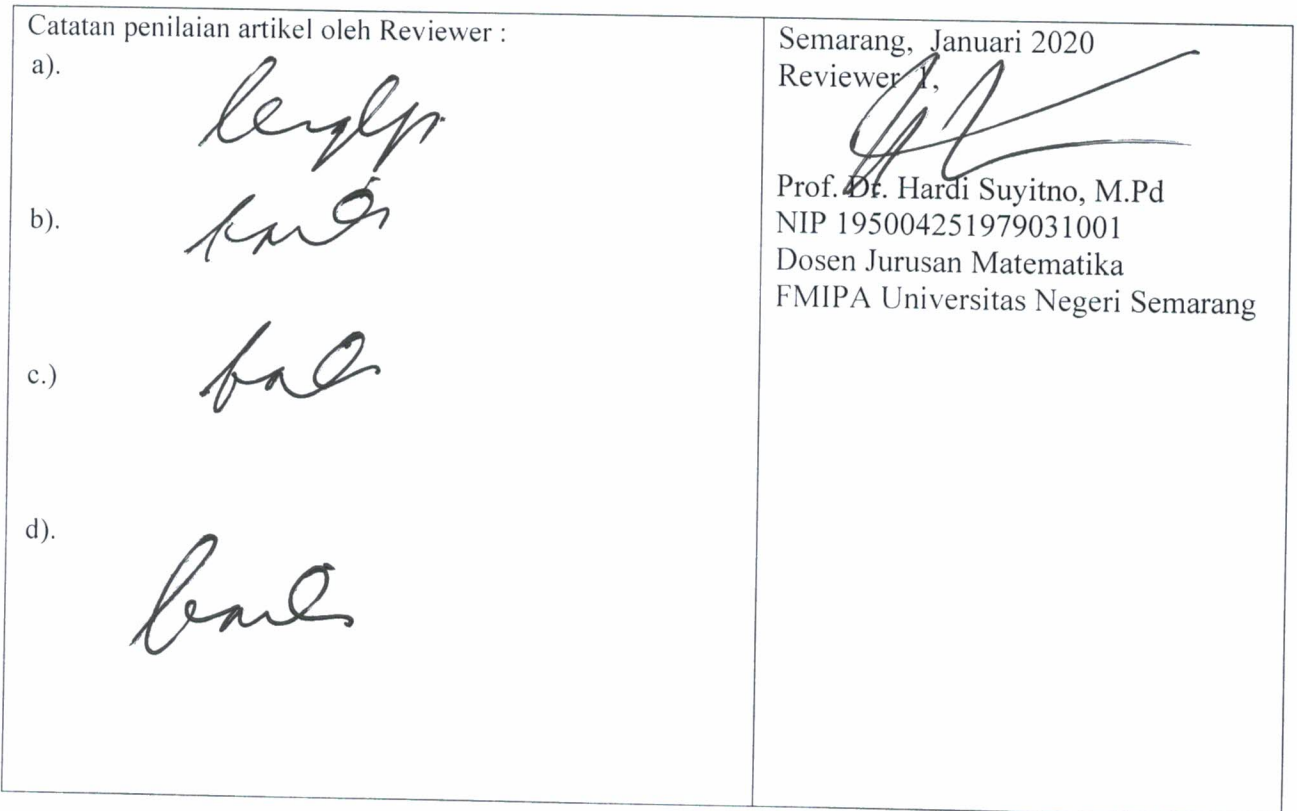 Catatan penilaian artikel oleh Reviewer :
a).
lengkap
b).
baik
c.)
baik
d).
baik
Semarang, Januari 2020
Reviewer 1,
Prof. Dr. Hardi Suyitno, M.Pd
NIP 195004251979031001
Dosen Jurusan Matematika
FMIPA Universitas Negeri Semarang